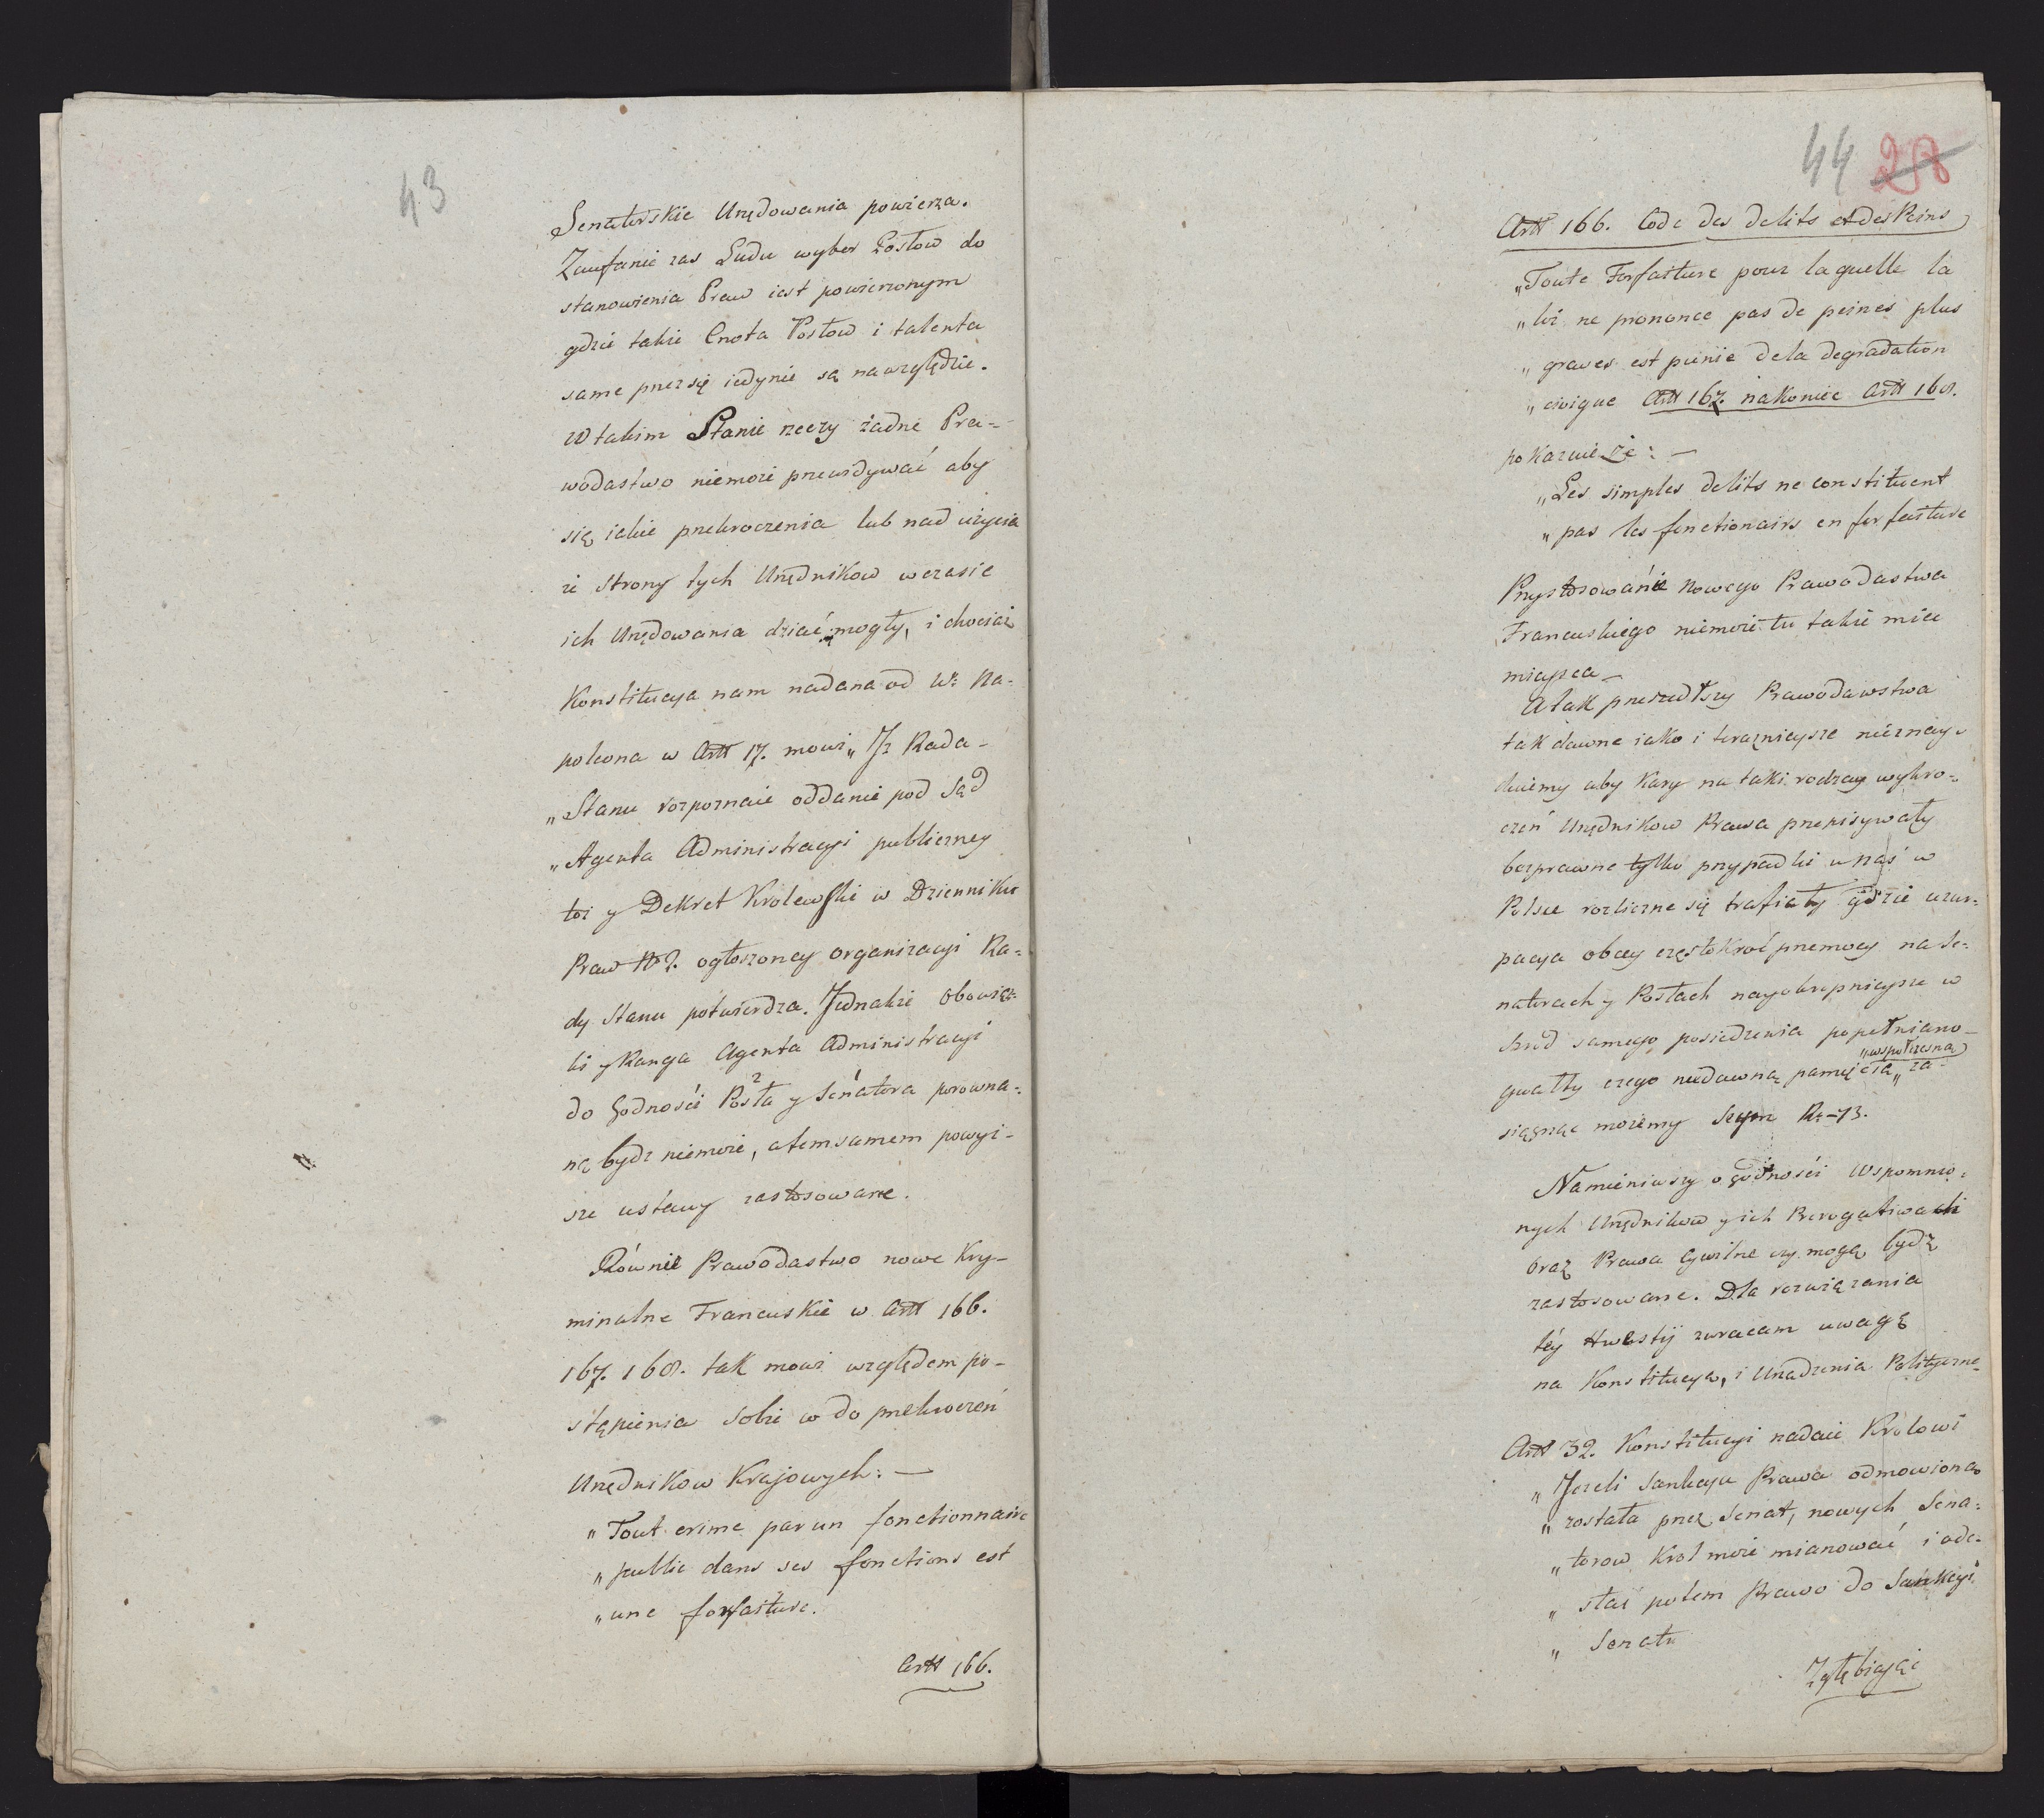 43
Senatorskie Urzędowania powierza.
Zaufanie zas Ludu wybor Posłow do
stanowienia Praw iest powierzonym
gdzie także Cnota Posłow i talenta
same przez się iedynie są na względzie.
W takim Stanie rzeczy żadne Pra-
wodastwo niemoże przewidywać aby
się iakie przekroczenia lub nad użycia
ze strony tych Urzędnikow w czasie
ich Urzędowania dziać mogły, i chociaż
Konstitucya nam nadana od W: Na-
poleona w Artt 17. mowi „Iż Rada-
„Stanu rozpoznaie oddanie pod Sąd
„Agenta Administracyi publiczney
toż y Dekret Krolewski w Dzienniku
Praw No 2. ogłoszoney organizacyi Ra=
dy Stanu potwierdza. Jednakże Obowiąz=
ki y Ranga Agenta Administracyi
do godności Posła y Senatora porowna=
ną bydz niemoże, a tem samem powyż-
sze ustawy zastosowane.
Równie Prawodastwo nowe Kry-
minalne Francuskie w Artt 166.
167. 168. tak mowi względem po-
stąpienia sobie w do przekroczeń
Urzędnikow Krajowych: —
„Tout crime par un fonctionnaire
„public dans ses fonctions est
„une forfaiture.
Artt 166.
44 28
Artt 166. Code des delits et des Peins
„Toute Forfaiture pour laquelle la
„loi ne prononce pas de peines plus
„graves est punie dela degradation
„civique Artt 167. nakoniec Artt 168.
pokazuie że: —
„Les simples delits ne constituent
„pas les fonctionairs en forfaiture
Przystosowanie Nowego Prawodastwa
Francuskiego niemoże tu także mieć
mieysca —
A tak przeszedłszy Prawodawstwa
tak dawne iako i teraznieysze nieznay-
duiemy aby Kary na taki rodzay wykro-
czeń Urzędnikow Prawa przepisywały
bezprawne tylko przypadki u nas w
Polsce rozliczne się trafiały gdzie uzur=
pacya obcey częstokroć przemocy na Se=
natorach y Posłach nayokropnieysze w
srod samego posiedzenia popełniano-
gwałty czego niedawną pamięcią „współczesną za-
siągnąc możemy Seym R: –73.
Namieniwszy o godności Wspomnio=
nych Urzędnikow y ich Prerogatiwach
oraz Prawa Cywilne czy mogą bydź
zastosowane. Dla rozwiązania
téy Kwestij zwracam uwagę
na Konstitucyą, i Urządzenia Polityczne-
Artt 32. Konstitucyi nadaie Krolowi
„Jezeli Sankcya Prawa odmowioną
„została przez Senat, nowych Sena=
„torow Krol może mianować i ode-
„słać potem Prawo do Sankcyi
„Senatu
Zgłębiaiąc